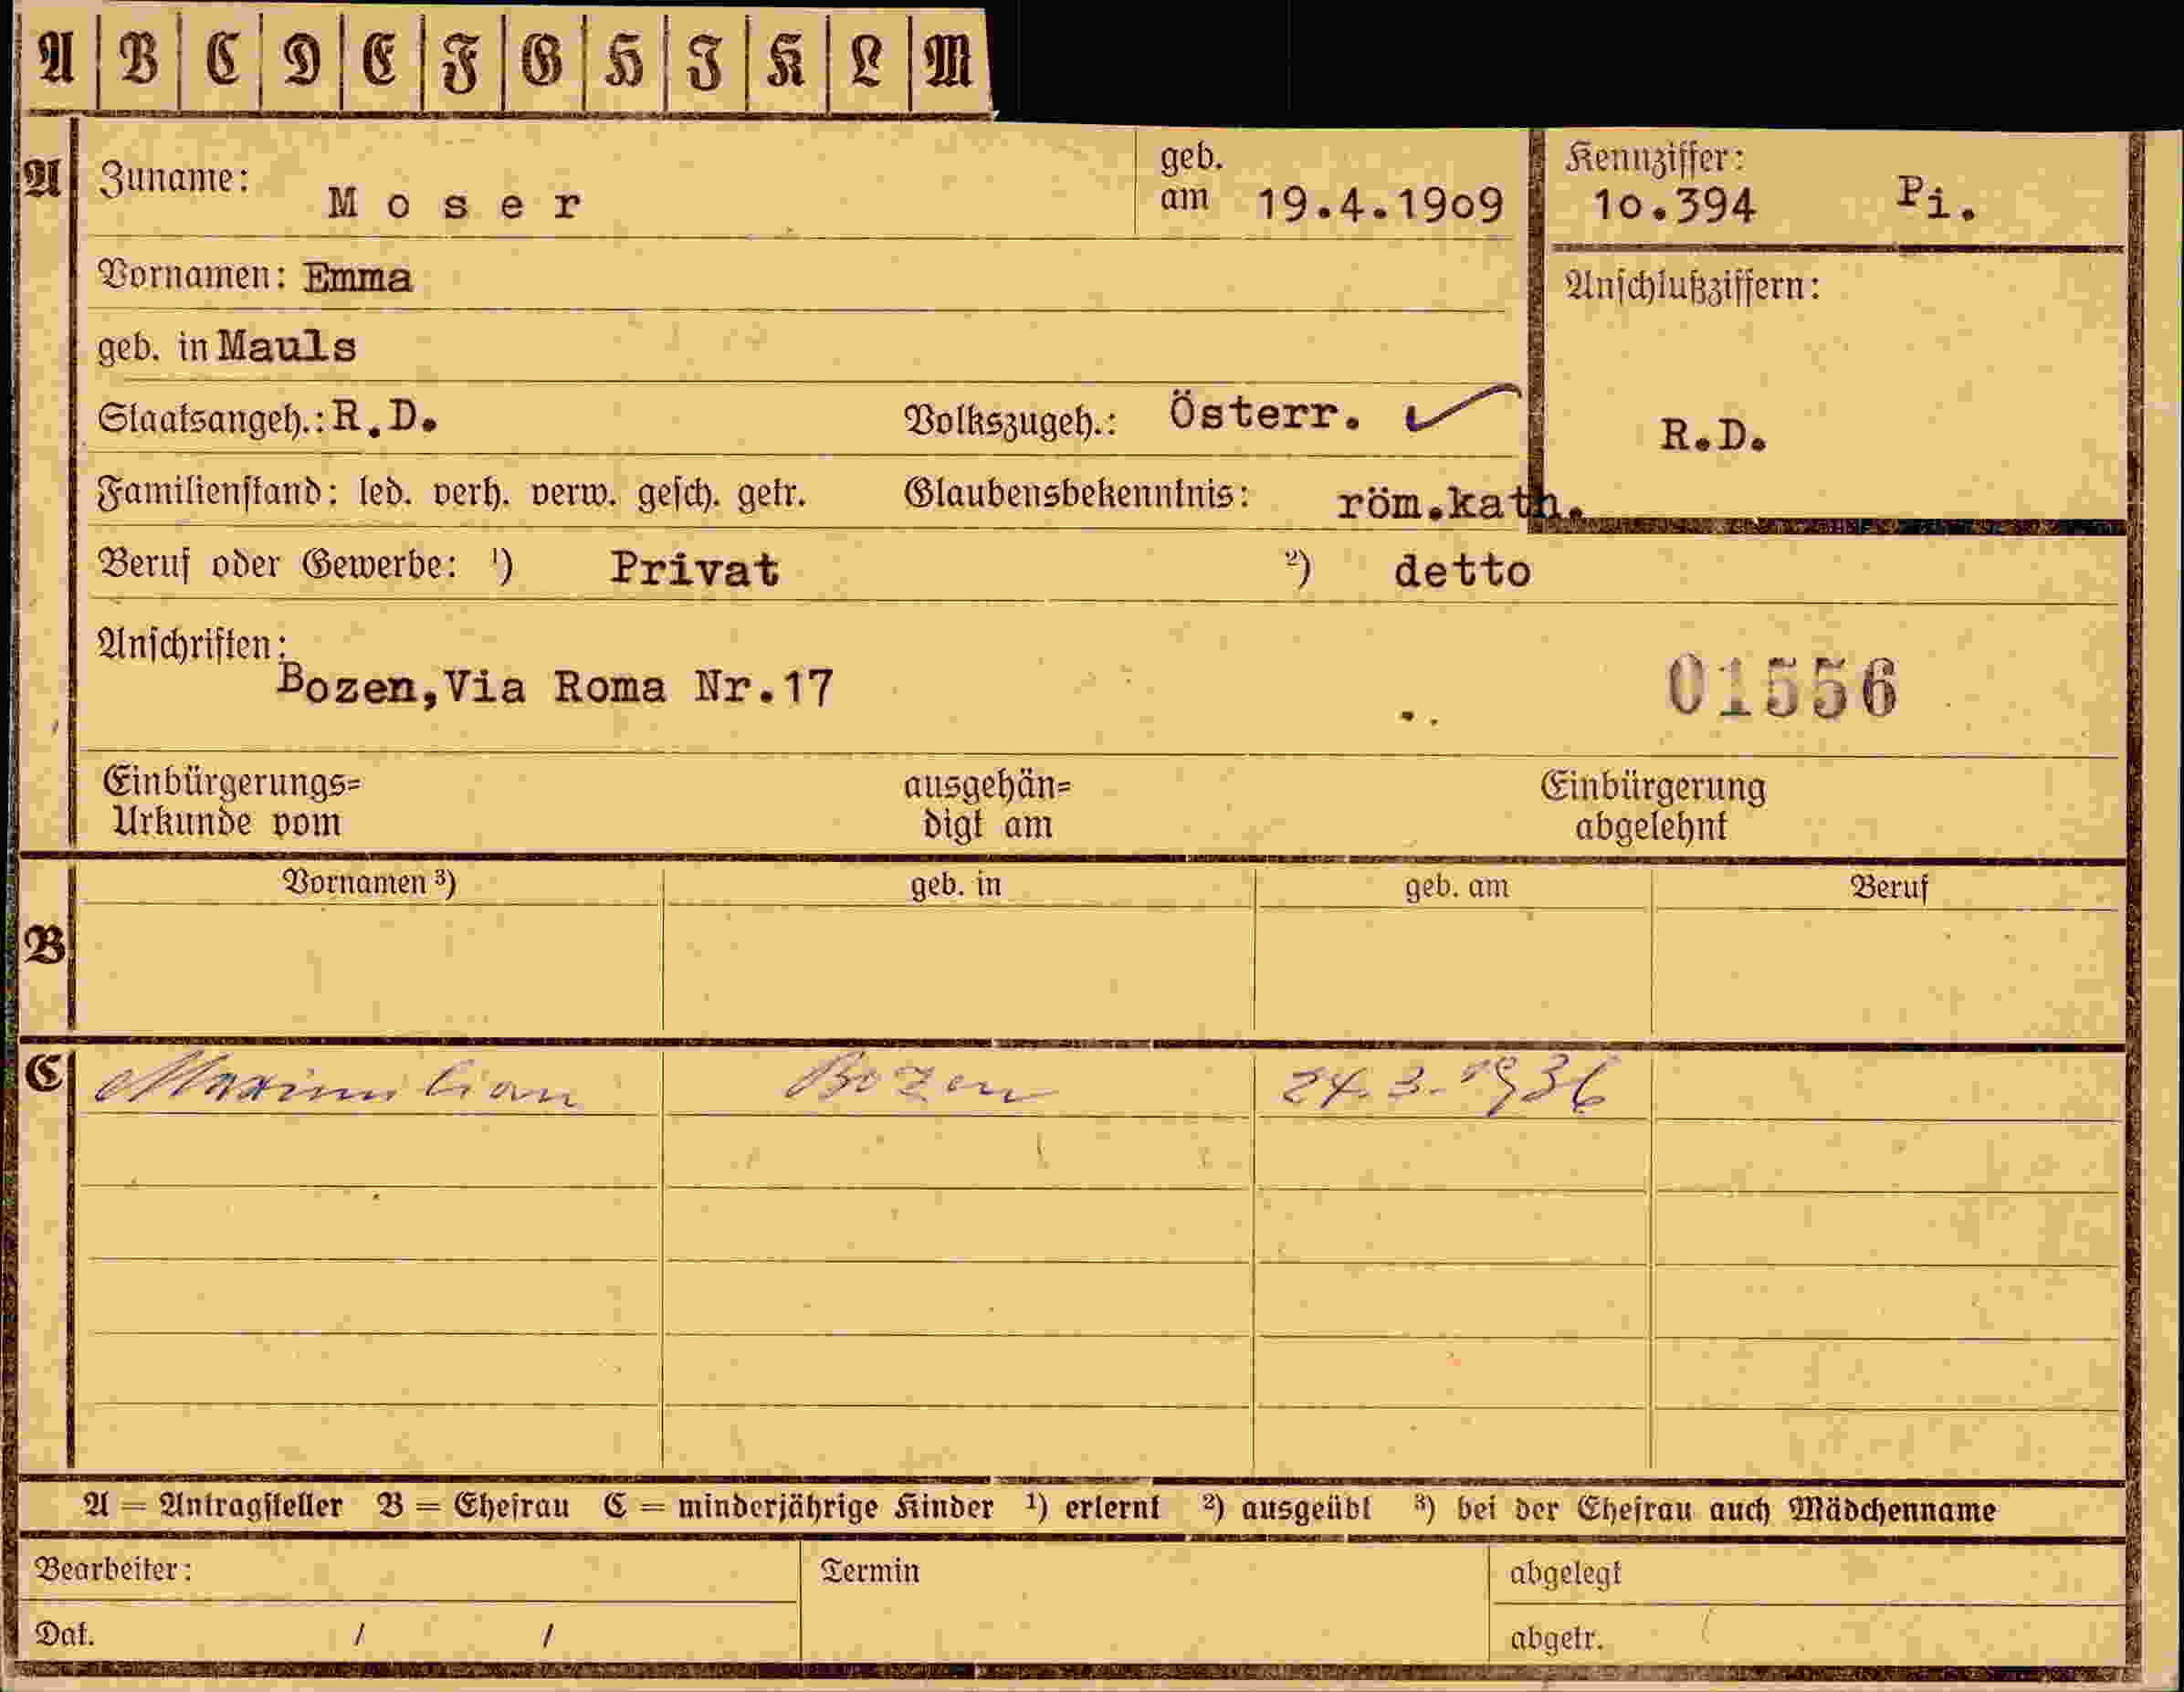 A B C D E F G H I K L M
A Zuname: Moser geb. am 19.4.1909 Kennziffer: 10.394 Pi.
Vornamen: Emma Anschlußziffern:
geb. in Mauls
Staatsangeh.: R.D. Volkszugeh.: Österr. R.D.
Familienstand: led. verh. verw. gesch. getr. Glaubensbekenntnis: röm.kath.
Beruf oder Gewerbe: ¹) Privat ²) detto
Anschriften:
Bozen,Via Roma Nr.17 01556
Einbürgerungs= ausgehän= Einbürgerung
Urkunde vom digt am abgelehnt
Vornamen ³) geb. in geb. am Beruf
B
C Maximilian Bozen 24.3.1936
A = Antragsteller B = Ehefrau C = minderjährige Kinder ¹) erlernt ²) ausgeübt ³) bei der Ehefrau auch Mädchenname
Bearbeiter: Termin abgelegt
Dat. / / abgetr.